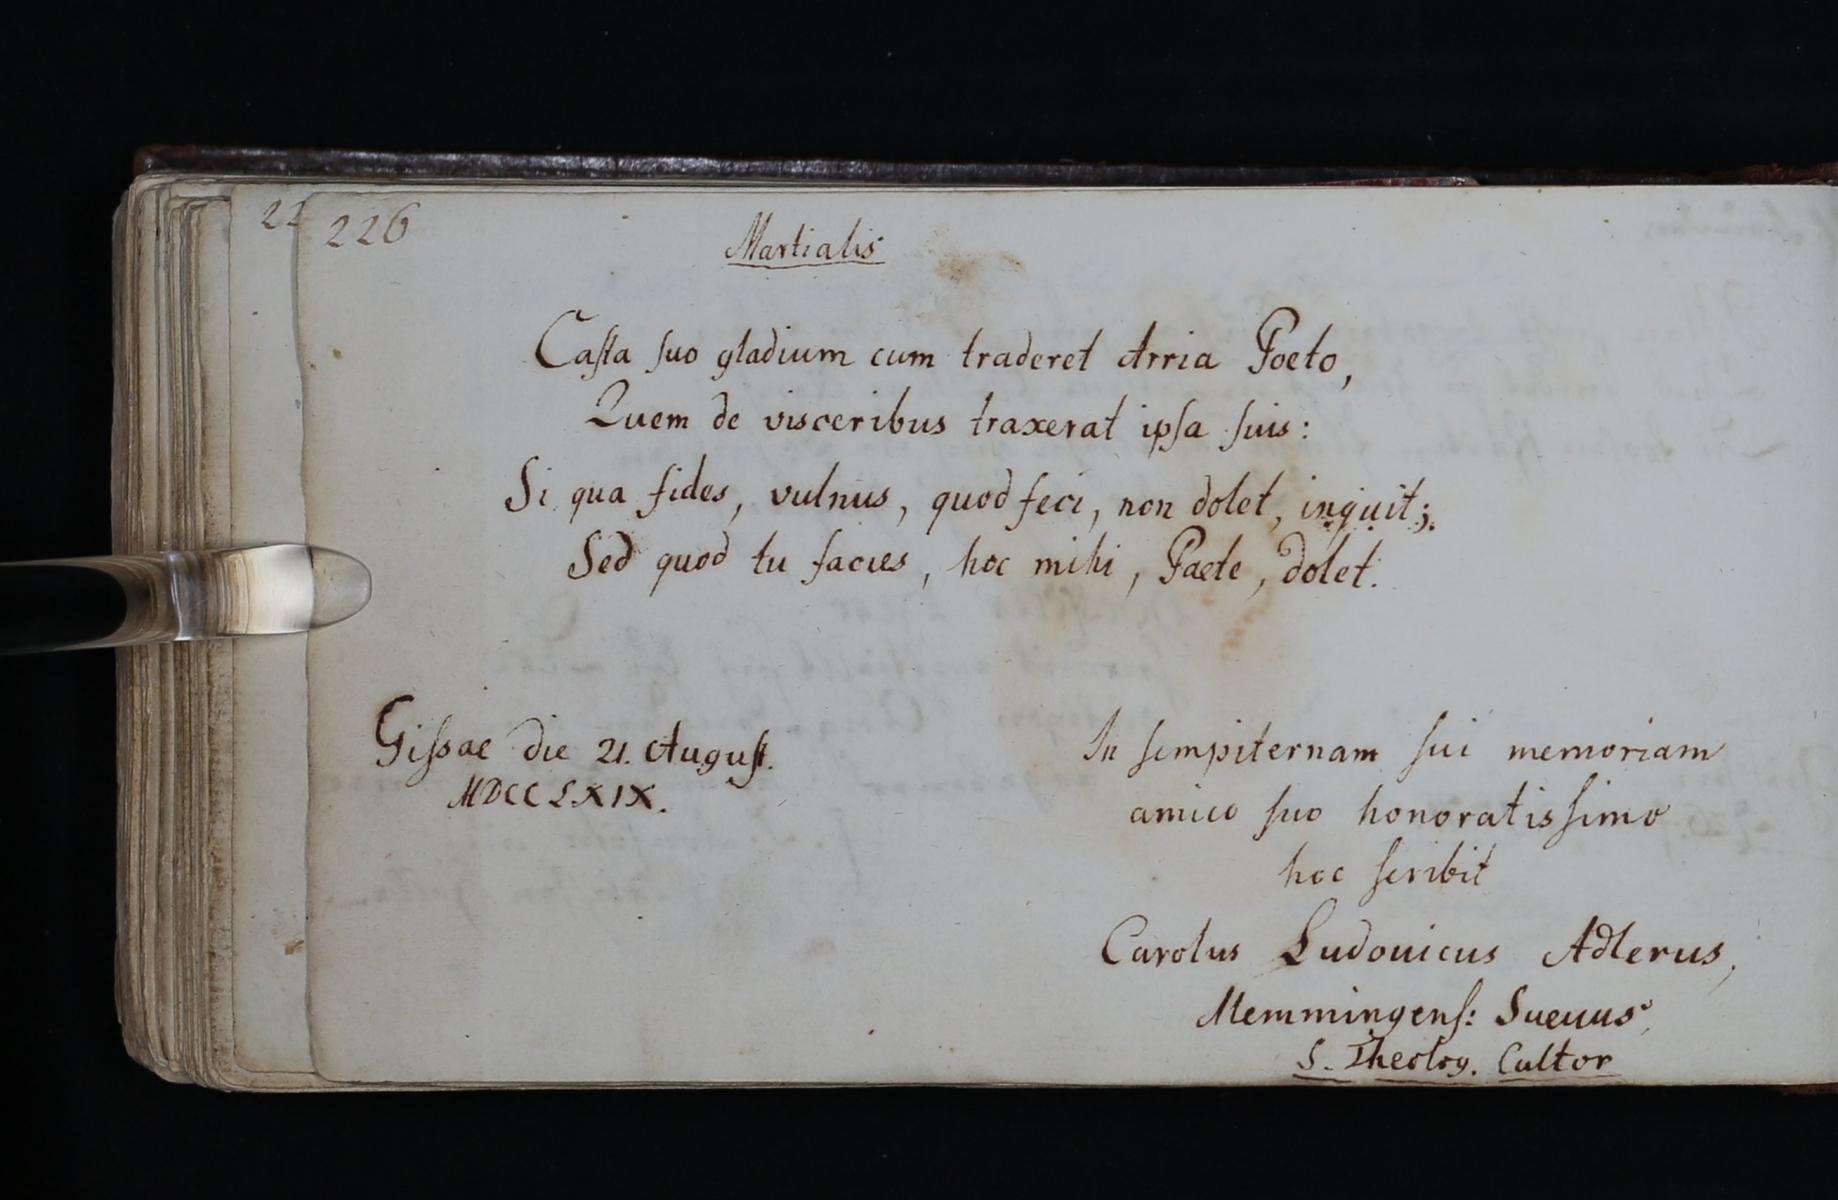 22
226
Martialis
Casta suo gladium cum traderet Arria Poeto,
Quem de visceribus traxerat ipsa suis:
Si qua fides, vulnus, quod feci, non dolet, inquit;
Sed quod tu facies, hoc mihi, Paete, dolet.
Gissae die 21. August.
MDCCLXIX.
In sempiternam sui memoriam
amico suo honoratissimo
hoc scribit
Carolus Ludouicus Adlerus,
Memmingens: Sueuus,
S. Theolog. Cultor